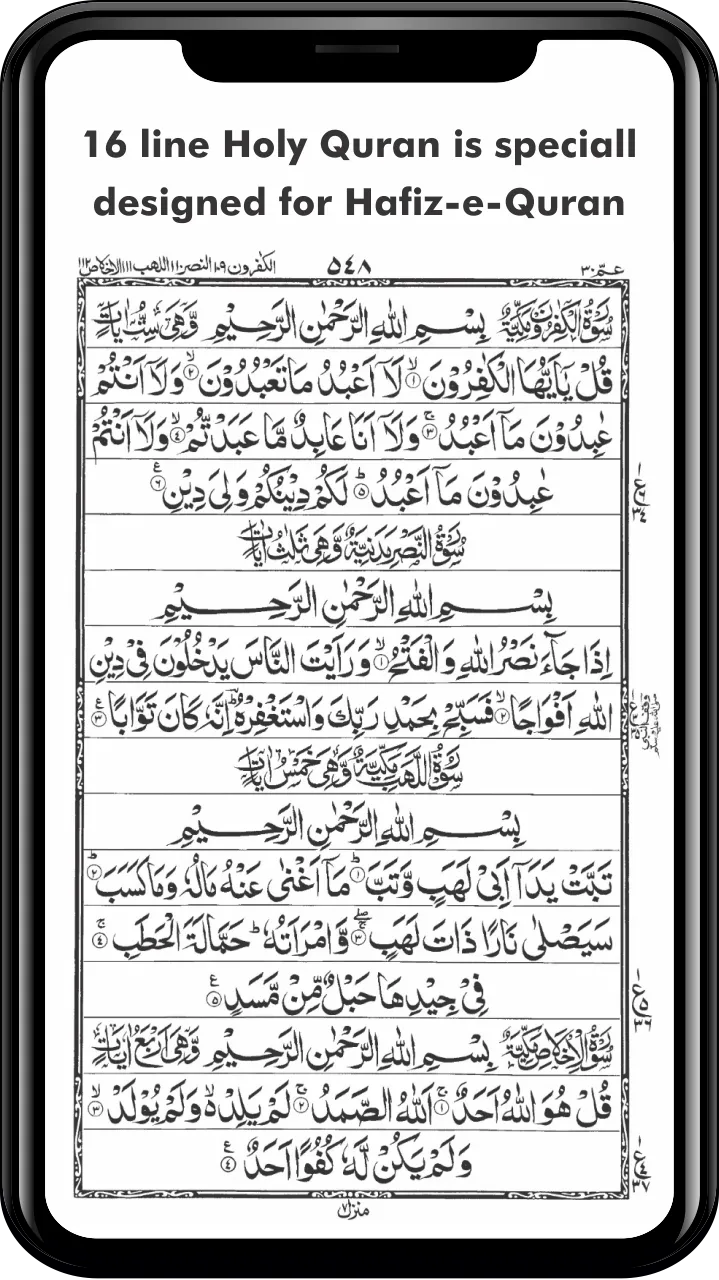 16 line Holy Quran is speciall
designed for Hafiz-e-Quran
عمّ ٣٠ ٥٤٨ الكفرون ١٠٩ النصر ١١٠ اللهب ١١١ الاخلاص ١١٢
سُوْرَةُ الْكٰفِرُوْنَ مَكِّيَّةٌ بِسْمِ اللّٰهِ الرَّحْمٰنِ الرَّحِيْمِ وَّهِيَ سِتُّ اٰيَاتٍ
قُلْ يٰۤاَيُّهَا الْكٰفِرُوْنَ ۙ﴿١﴾ لَاۤ اَعْبُدُ مَا تَعْبُدُوْنَ ۙ﴿٢﴾ وَلَاۤ اَنْتُمْ
عٰبِدُوْنَ مَاۤ اَعْبُدُ ۚ﴿٣﴾ وَلَاۤ اَنَا عَابِدٌ مَّا عَبَدْتُّمْ ۙ﴿٤﴾ وَلَاۤ اَنْتُمْ
عٰبِدُوْنَ مَاۤ اَعْبُدُ ؕ﴿٥﴾ لَكُمْ دِيْنُكُمْ وَلِيَ دِيْنِ ﴿٦﴾ ع
سُوْرَةُ النَّصْرِ مَدَنِيَّةٌ وَّهِيَ ثَلٰثُ اٰيَاتٍ
بِسْمِ اللّٰهِ الرَّحْمٰنِ الرَّحِيْمِ
اِذَا جَآءَ نَصْرُ اللّٰهِ وَالْفَتْحُ ۙ﴿١﴾ وَرَاَيْتَ النَّاسَ يَدْخُلُوْنَ فِيْ دِيْنِ
اللّٰهِ اَفْوَاجًا ۙ﴿٢﴾ فَسَبِّحْ بِحَمْدِ رَبِّكَ وَاسْتَغْفِرْهُ ؕ اِنَّهٗ كَانَ تَوَّابًا ﴿٣﴾ ع
سُوْرَةُ اللَّهَبِ مَكِّيَّةٌ وَّهِيَ خَمْسُ اٰيَاتٍ
بِسْمِ اللّٰهِ الرَّحْمٰنِ الرَّحِيْمِ
تَبَّتْ يَدَاۤ اَبِيْ لَهَبٍ وَّتَبَّ ؕ﴿١﴾ مَاۤ اَغْنٰى عَنْهُ مَالُهٗ وَمَا كَسَبَ ؕ﴿٢﴾
سَيَصْلٰى نَارًا ذَاتَ لَهَبٍ ۚۖ﴿٣﴾ وَّامْرَاَتُهٗ ؕ حَمَّالَةَ الْحَطَبِ ۚ﴿٤﴾
فِيْ جِيْدِهَا حَبْلٌ مِّنْ مَّسَدٍ ﴿٥﴾ ع
سُوْرَةُ الْاِخْلَاصِ مَكِّيَّةٌ بِسْمِ اللّٰهِ الرَّحْمٰنِ الرَّحِيْمِ وَّهِيَ اَرْبَعُ اٰيَاتٍ
قُلْ هُوَ اللّٰهُ اَحَدٌ ۚ﴿١﴾ اَللّٰهُ الصَّمَدُ ۚ﴿٢﴾ لَمْ يَلِدْ ۙ وَلَمْ يُوْلَدْ ۙ﴿٣﴾
وَلَمْ يَكُنْ لَّهٗ كُفُوًا اَحَدٌ ﴿٤﴾ ع
منزل ٧